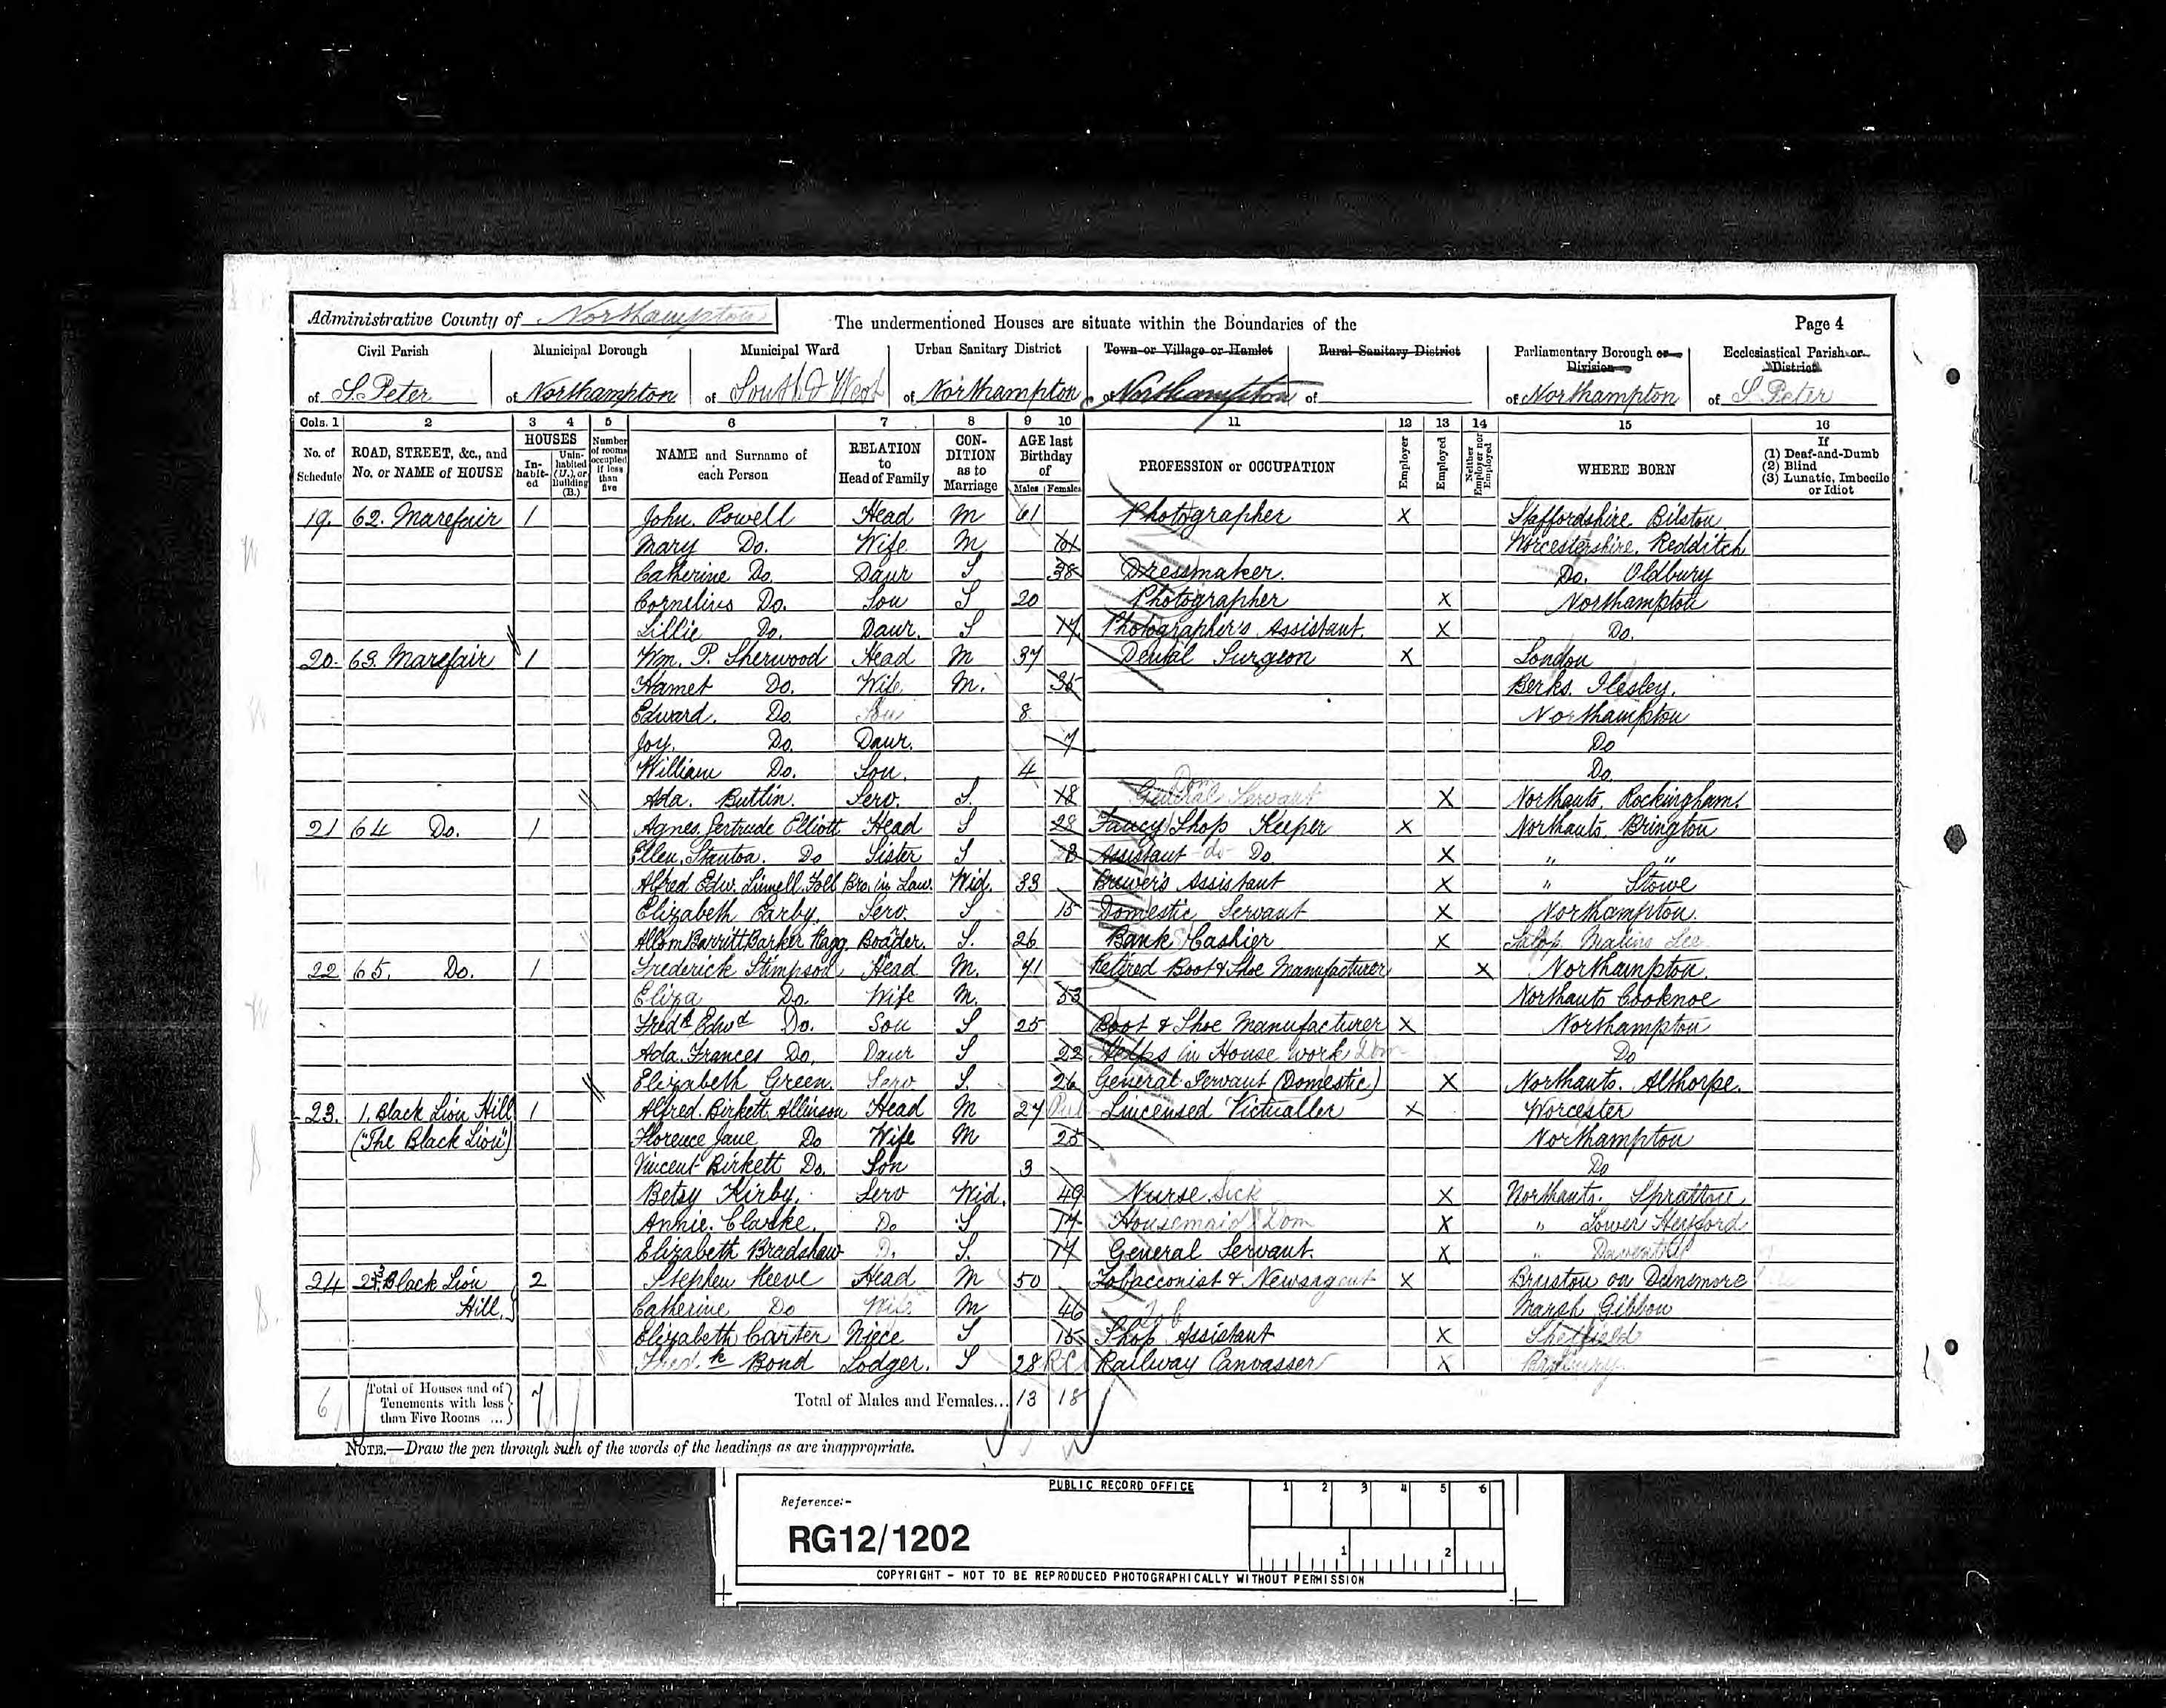 Administrative County of Northampton
The undermentioned Houses are situate within the Boundaries of the
Page 4
Civil Parish Municipal Borough Municipal Ward Urban Sanitary District Town or Village or Hamlet Rural Sanitary District Parliamentary Borough or Division Ecclesiastical Parish or District
of S. Peter of Northampton of South West of Northampton of Northampton of of Northampton of S. Peter
Cols. 1 2 3 4 5 6 7 8 9 10 11 12 13 14 15 16
No. of Schedule ROAD, STREET, &c., and No. or NAME of HOUSE HOUSES In-habit-ed Unin-habited (U.), or Building (B.) Number of rooms occupied if less than five NAME and Surname of each Person RELATION to Head of Family CON-DITION as to Marriage AGE last Birthday of Males Females PROFESSION or OCCUPATION Employer Employed Neither Employer nor Employed WHERE BORN If (1) Deaf-and-Dumb (2) Blind (3) Lunatic, Imbecile or Idiot
19. 62. Marefair 1 John. Powell Head M 61 Photographer X Staffordshire Bilston
Mary Do. Wife M 61 Worcestershire. Redditch
Catherine Do. Daur S 38 Dressmaker. Do. Oldbury
Cornelius Do. Son S 20 Photographer X Northampton
Lillie Do. Daur. S 17 Photographer's Assistant. X Do.
20. 63. Marefair 1 Wm. P. Sherwood Head M 37 Dental Surgeon X London
Do. Wife M. 35 Berks. Ilesley.
Edward. Do. Son 8 Northampton
Joy. Do. Daur. 7 Do
William Do. Son. 4 Do.
Ada. Butlin. Serv. S. 18 General Servant Dom X Northants. Rockingham.
21 64 Do. 1 Agnes Gertrude Elliott Head S 28 Fancy Shop Keeper X Northants. Brington
Ellen. Do Sister S Assistant do Do. X " "
Alfred Edw. Linnell Bro. in Law. Wid. 33 Brewer's Assistant X " Stowe
Elizabeth Serv. S 15 Domestic Servant X Northampton.
Barker Boarder. S. 26 Bank Cashier X Salop
22 65. Do. 1 Frederick Stimpson Head M. 71 Retired Boot & Shoe Manufacturer X Northampton.
Eliza Do. Wife M. 53 Northants Cooknoe
Fredk Edwd Do. Son S 25 Boot & Shoe Manufacturer X Northampton
Ada. Frances Do. Daur S 22 Helps in House work Dom Do
Elizabeth Green. Serv S. 26 General Servant (Domestic) X Northants. Althorpe.
23. 1. Black Lion Hill 1 Alfred. Birkett Allinson Head M 27 Lincensed Victualler X Worcester
("The Black Lion") Florence Jane Do Wife M 25 Northampton
Vincent Birkett Do. Son 3 Do
Betsy Kirby. Serv Wid. 49 Nurse. Sick X Northants. Spratton
Annie. Clarke. Do S Housemaid Dom X " Lower Heyford
Elizabeth Bradshaw D. S. 17 General Servant. X " Daventry
24 Black Lion 2 Stephen Reeve Head M 50 Tobacconist & Newsagent X on Dunsmore
Hill. Catherine Do Wife M 46 Marsh Gibbon
Elizabeth Carter Niece S 15 Shop Assistant X Sheffield
Fred.k Bond Lodger. S 28 Railway Canvasser X
6 Total of Houses and of Tenements with less than Five Rooms ... 7 Total of Males and Females... 13 18
NOTE.—Draw the pen through such of the words of the headings as are inappropriate.
PUBLIC RECORD OFFICE
1 2 3 4 5 6
Reference:-
RG12/1202
1 2
COPYRIGHT - NOT TO BE REPRODUCED PHOTOGRAPHICALLY WITHOUT PERMISSION